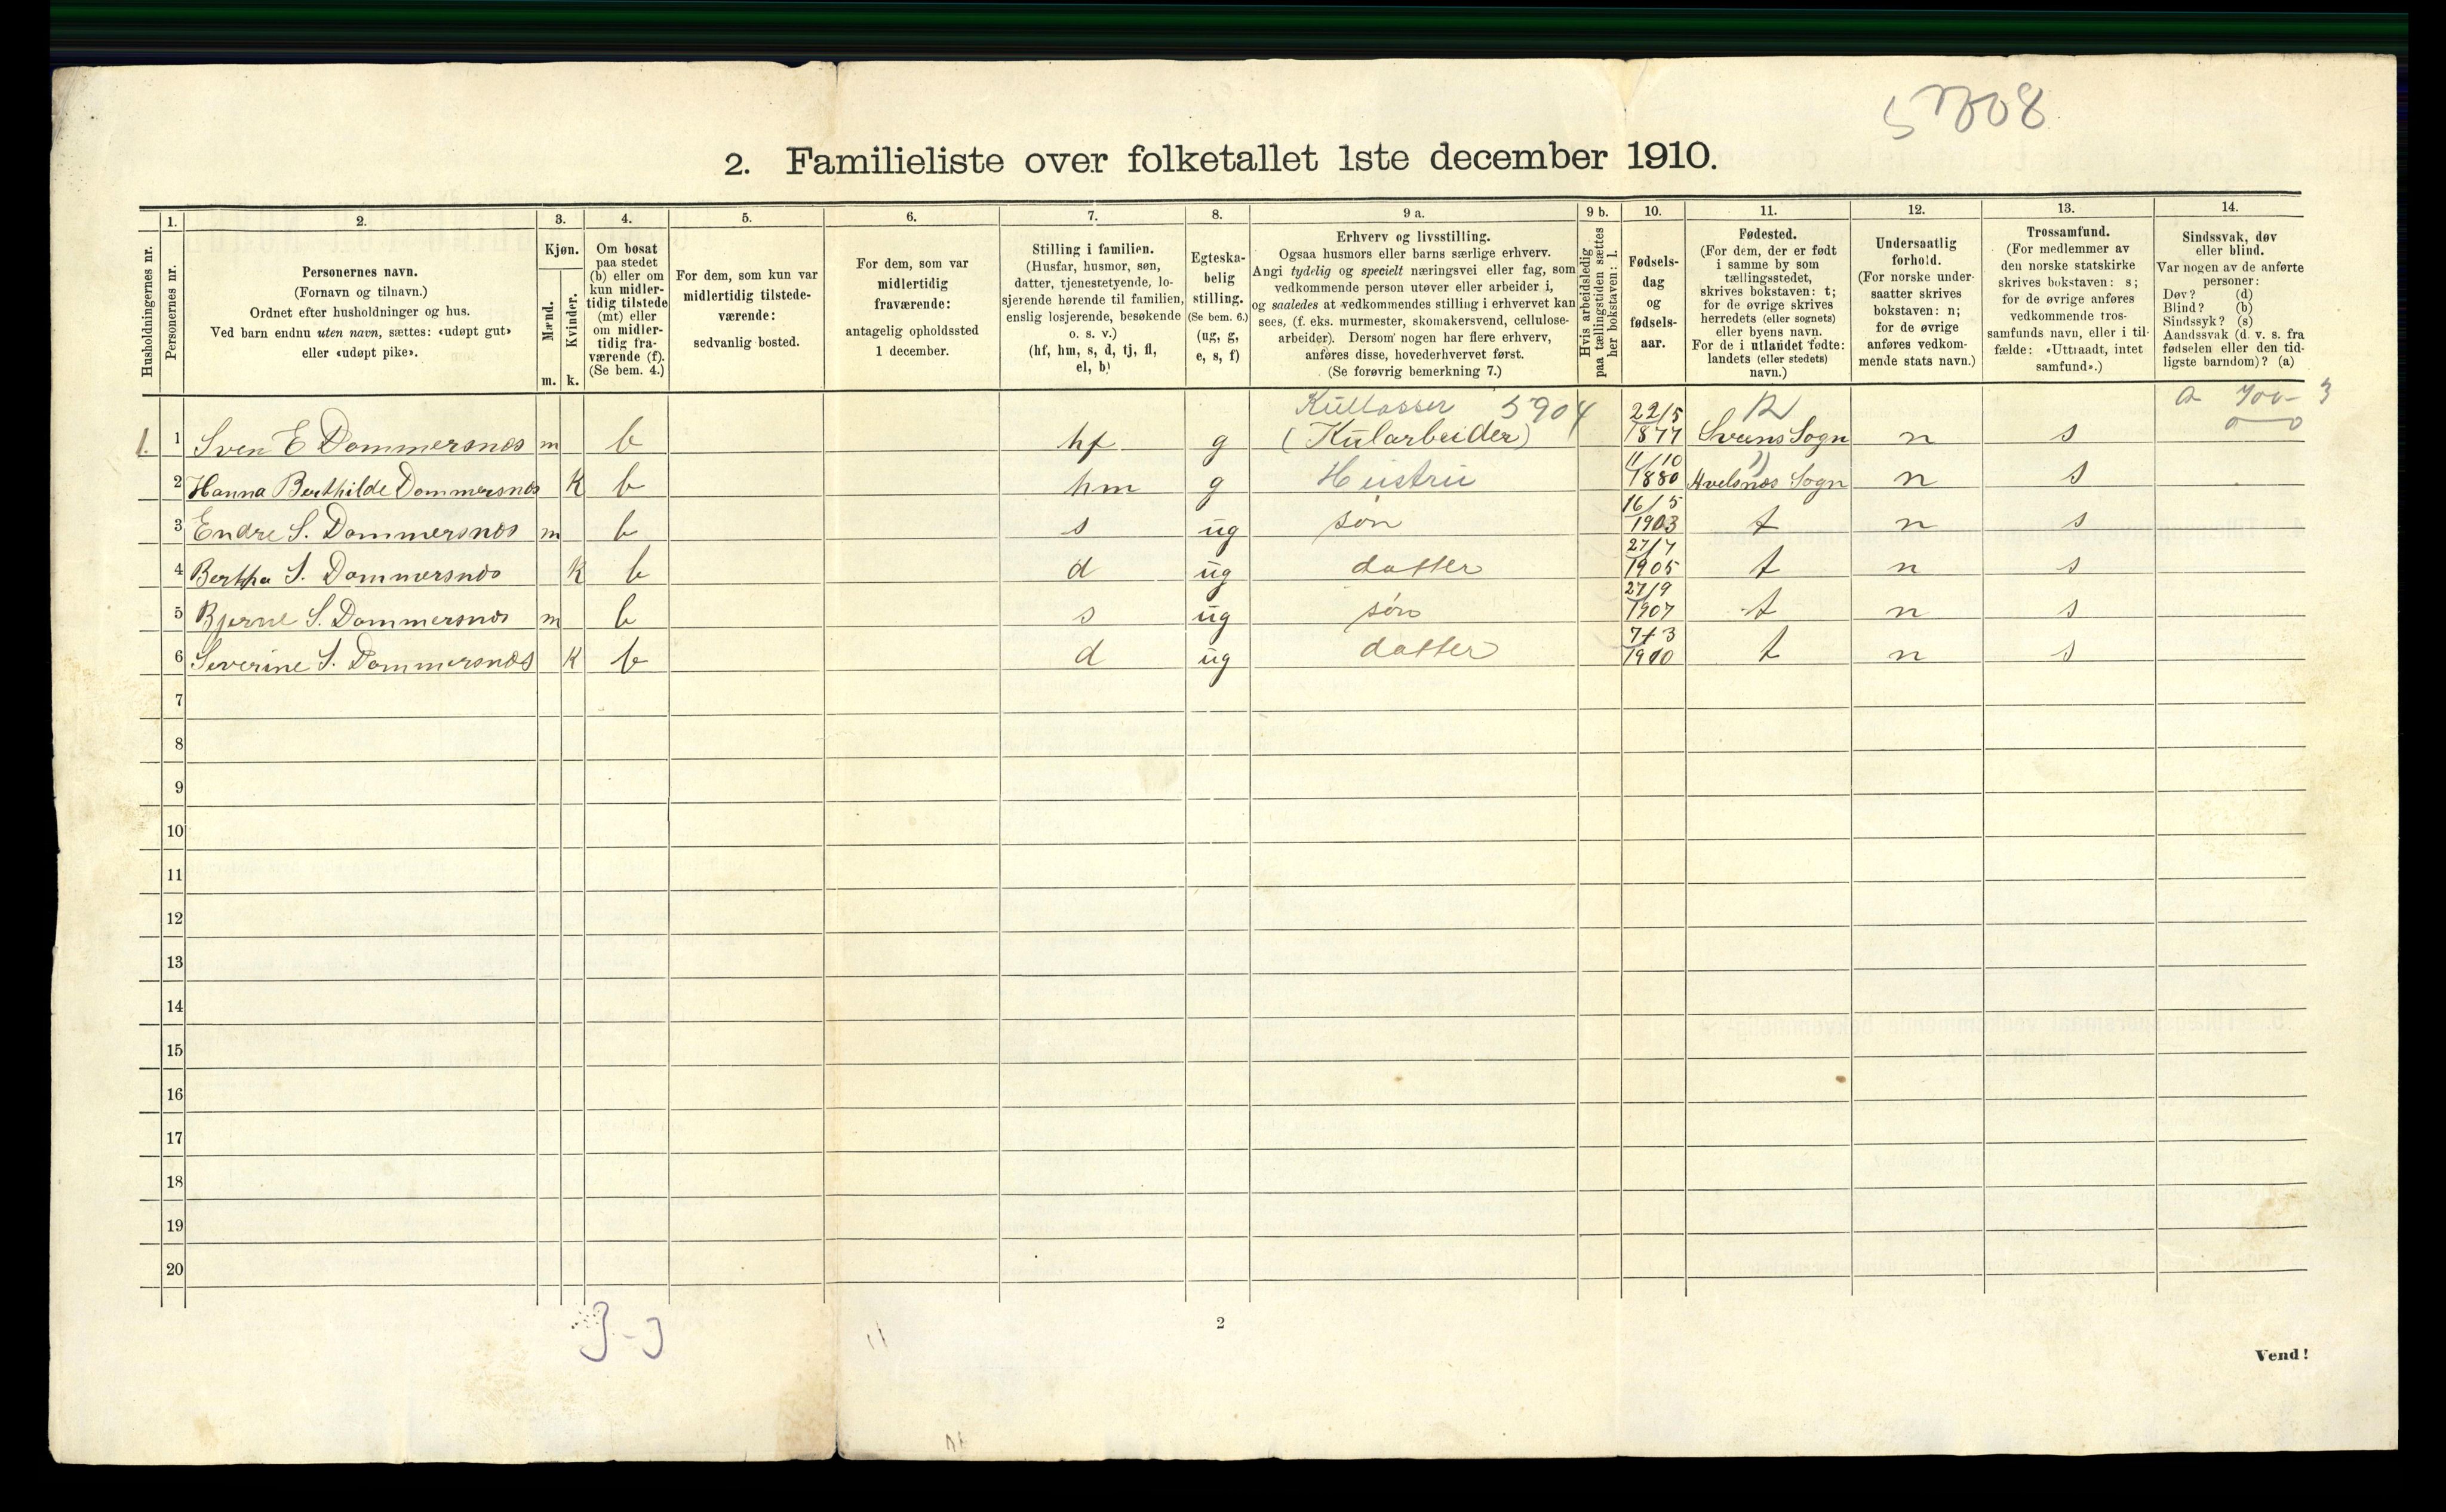 2. Familieliste over folketallet 1ste december 1910.
Husholdningernes nr.
1. Personernes nr.
2. Personernes navn.
(Fornavn og tilnavn.)
Ordnet efter husholdninger og hus.
Ved barn endnu uten navn, sættes: «udøpt gut»
eller «udøpt pike».
3. Kjøn.
Mænd. Kvinder.
m. k.
4. Om bosat
paa stedet
(b) eller om
kun midler-
tidig tilstede
(mt) eller
om midler-
tidig fra-
værende (f).
(Se bem. 4.)
5. For dem, som kun var
midlertidig tilstede-
værende:
sedvanlig bosted.
6. For dem, som var
midlertidig
fraværende:
antagelig opholdssted
1 december.
7. Stilling i familien.
(Husfar, husmor, søn,
datter, tjenestetyende, lo-
sjerende hørende til familien,
enslig losjerende, besøkende
o. s. v.)
(hf, hm, s, d, tj, fl,
el, b)
8. Egteska-
belig
stilling.
(Se bem. 6.)
(ug, g,
e, s, f)
9 a. Erhverv og livsstilling.
Ogsaa husmors eller barns særlige erhverv.
Angi tydelig og specielt næringsvei eller fag, som
vedkommende person utøver eller arbeider i,
og saaledes at vedkommendes stilling i erhvervet kan
sees, (f. eks. murmester, skomakersvend, cellulose-
arbeider). Dersom nogen har flere erhverv,
anføres disse, hovederhvervet først.
(Se forøvrig bemerkning 7.)
9 b. Hvis arbeidsledig
paa tællingstiden sættes
her bokstaven: l.
10. Fødsels-
dag
og
fødsels-
aar.
11. Fødested.
(For dem, der er født
i samme by som
tællingsstedet,
skrives bokstaven: t;
for de øvrige skrives
herredets (eller sognets)
eller byens navn.
For de i utlandet fødte:
landets (eller stedets)
navn.)
12. Undersaatlig
forhold.
(For norske under-
saatter skrives
bokstaven: n;
for de øvrige
anføres vedkom-
mende stats navn.)
13. Trossamfund.
(For medlemmer av
den norske statskirke
skrives bokstaven: s;
for de øvrige anføres
vedkommende tros-
samfunds navn, eller i til-
fælde: «Uttraadt, intet
samfund».)
14. Sindssvak, døv
eller blind.
Var nogen av de anførte
personer:
Døv? (d)
Blind? (b)
Sindssyk? (s)
Aandssvak (d. v. s. fra
fødselen eller den tid-
ligste barndom)? (a)
1. 1 Sven E Dommersnes m b hf g Kullosser 5904 (Kularbeider) 22/5 1877 Sveens Sogn n s
2 Hanna Berthilde Dommersnes K b hm g Hustru 11/10 1880 Avelsnæs Sogn n s
3 Endre S. Dommersnes m b s ug søn 16/5 1903 t n s
4 Bertha S. Dommersnes K b d ug datter 27/7 1905 t n s
5 Bjerne S. Dommersnes m b s ug søn 27/9 1907 t n s
6 Severine S. Dommersnes K b d ug datter 7/3 1910 t n s
7
8
9
10
11
12
13
14
15
16
17
18
19
20
3-3
2
Vend!